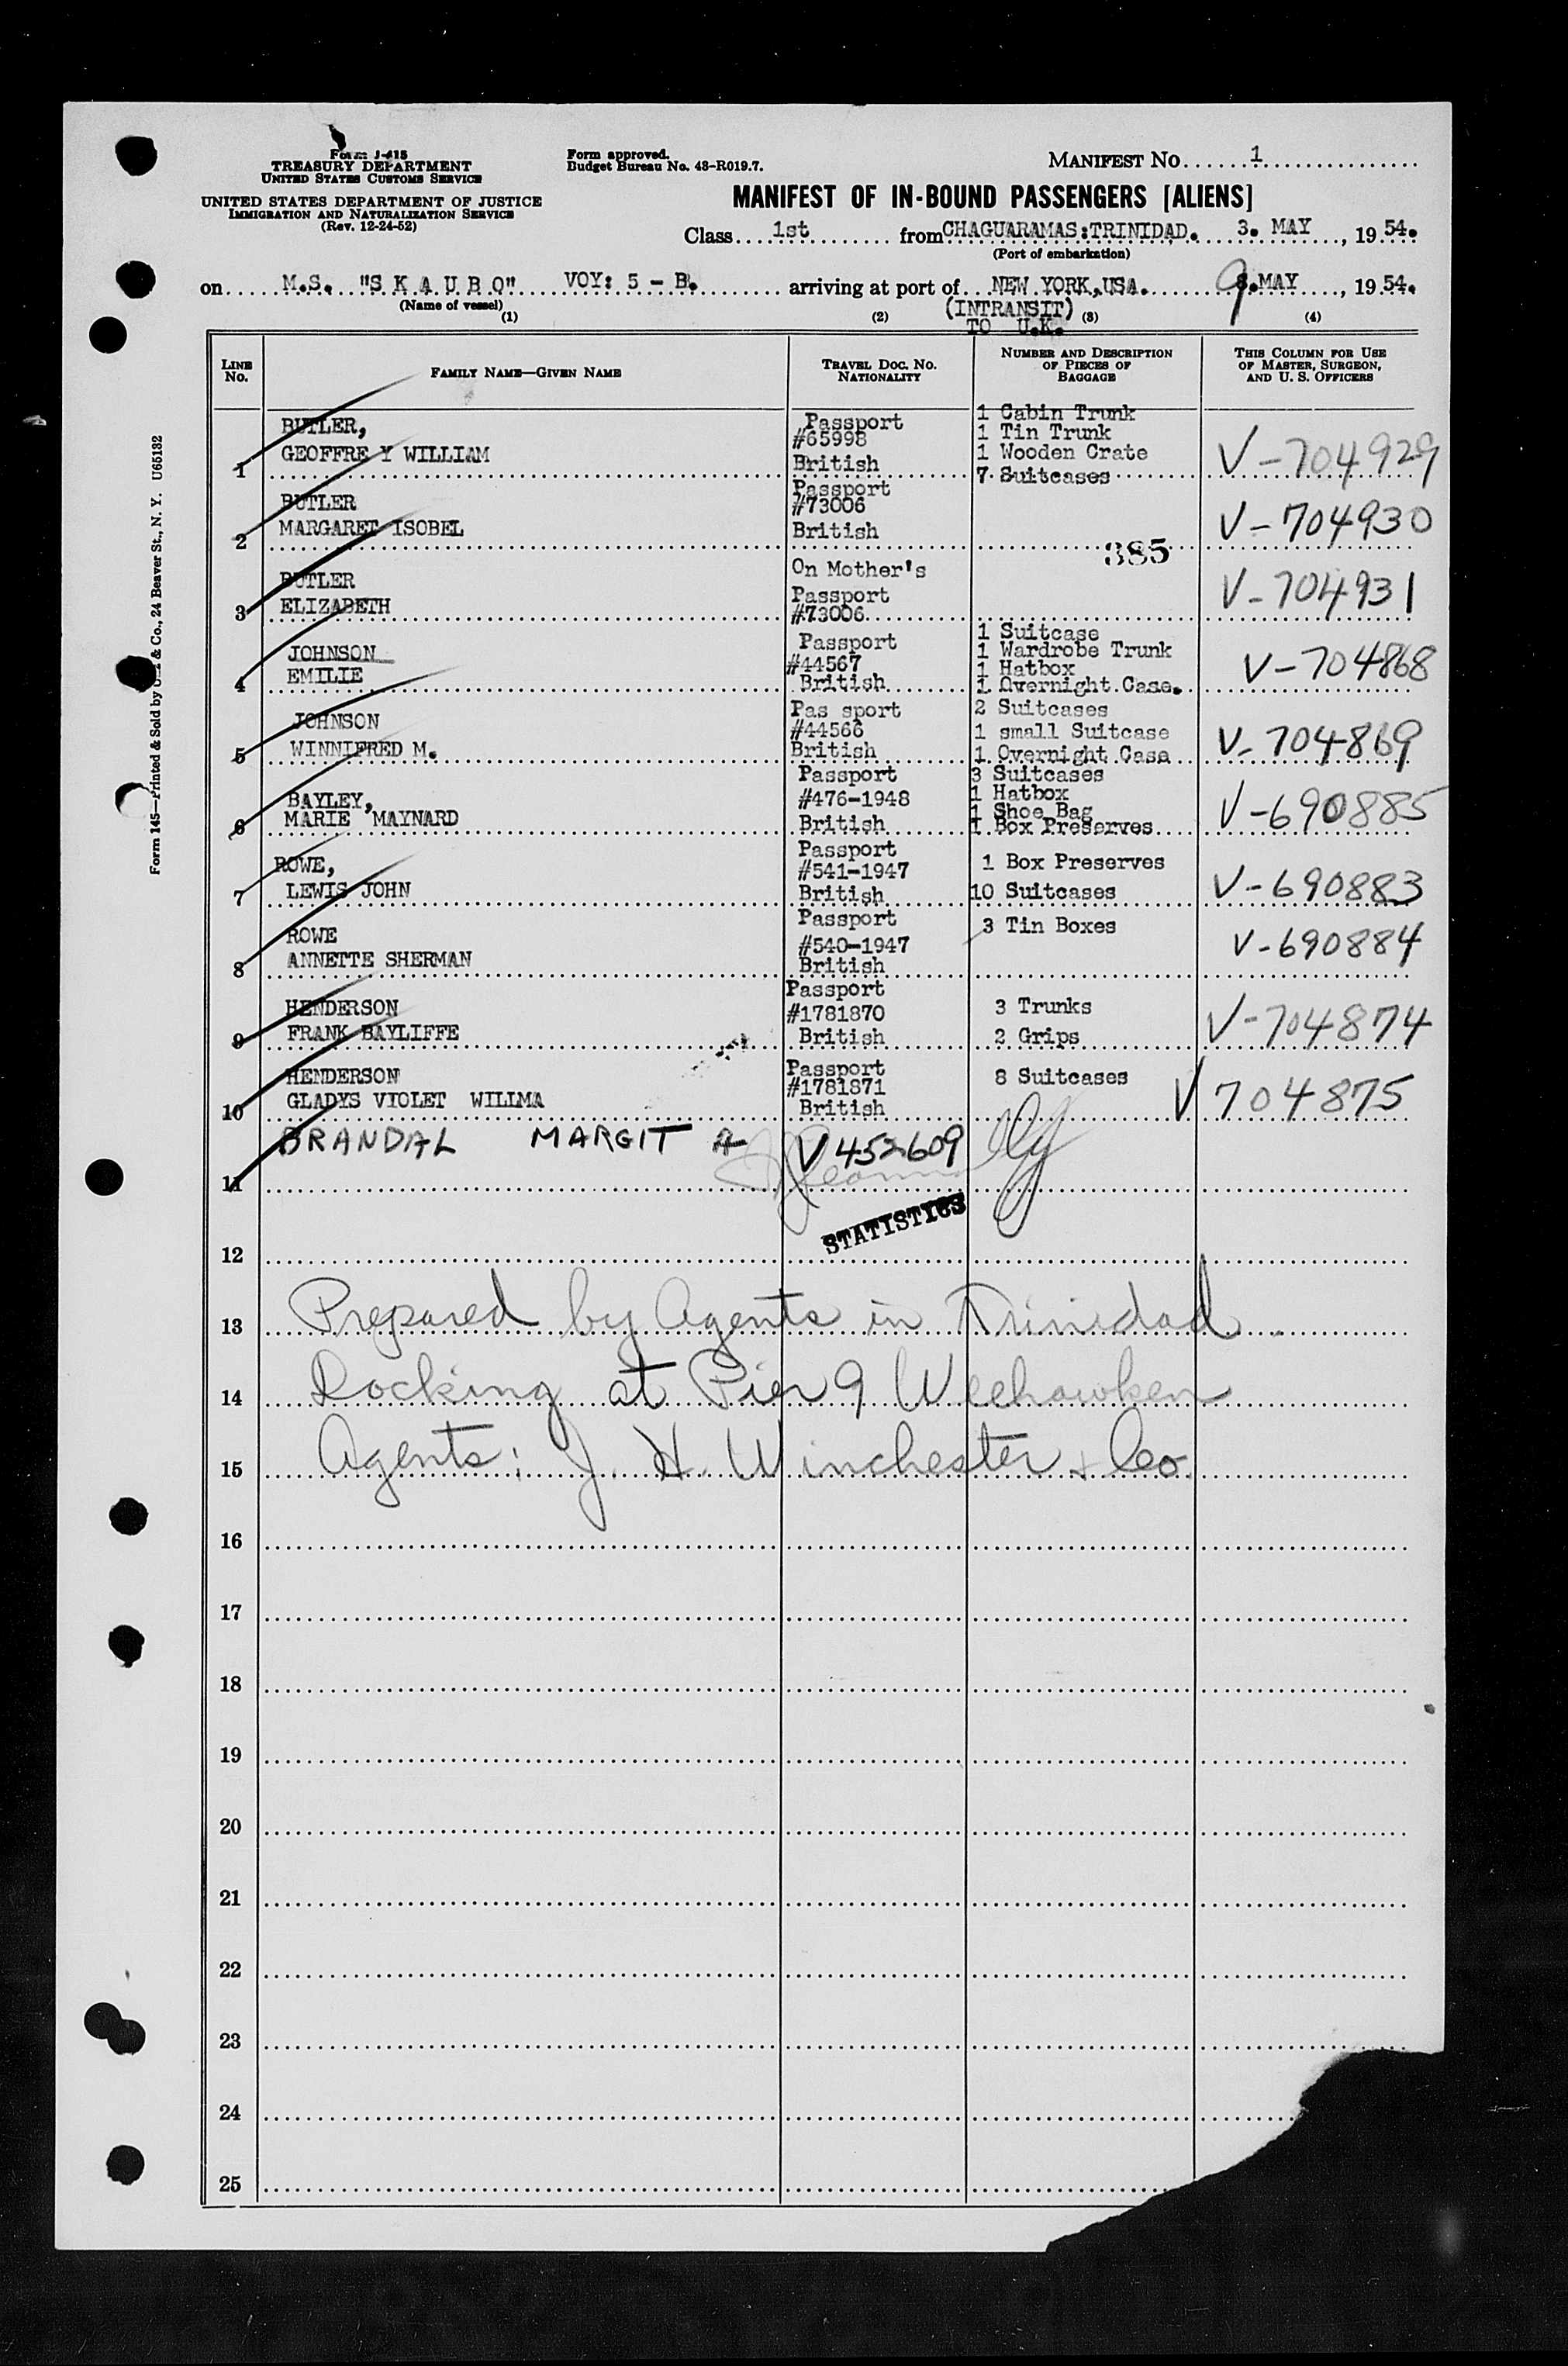 Form I-418
TREASURY DEPARTMENT
UNITED STATES CUSTOMS SERVICE
UNITED STATES DEPARTMENT OF JUSTICE
IMMIGRATION AND NATURALIZATION SERVICE
(Rev. 12-24-52)
Form approved.
Budget Bureau No. 43-R019.7.
MANIFEST NO......1...............
MANIFEST OF IN-BOUND PASSENGERS [ALIENS]
Class....1st........ from CHAGUARAMAS:TRINIDAD. 3. MAY ...., 19 54.
(Port of embarkation)
on......M.S. "S K A U B O" VOY: 5 - B. ......... arriving at port of...NEW YORK,USA. 9.MAY ...., 19 54.
(Name of vessel)
(INTRANSIT)
TO U.K.
(1) (2) (3) (4)
LINE No. FAMILY NAME—GIVEN NAME TRAVEL DOC. NO. NATIONALITY NUMBER AND DESCRIPTION OF PIECES OF BAGGAGE THIS COLUMN FOR USE OF MASTER, SURGEON, AND U. S. OFFICERS
1 BUTLER, GEOFFRE Y WILLIAM Passport #65998 British 1 Cabin Trunk 1 Tin Trunk 1 Wooden Crate 7 Suitcases V-704929
2 BUTLER MARGARET ISOBEL Passport #73006 British V-704930
385
3 BUTLER ELIZABETH On Mother's Passport #73006 V-704931
4 JOHNSON EMILIE Passport #44567 British 1 Suitcase 1 Wardrobe Trunk 1 Hatbox 1 Overnight Case. V-704868
5 JOHNSON WINNIFRED M. Pas sport #44566 British 2 Suitcases 1 small Suitcase 1 Overnight Case V-704869
6 BAYLEY, MARIE MAYNARD Passport #476-1948 British 3 Suitcases 1 Hatbox 1 Shoe Bag 1 Box Preserves V-690885
7 ROWE, LEWIS JOHN Passport #541-1947 British 1 Box Preserves 10 Suitcases V-690883
8 ROWE ANNETTE SHERMAN Passport #540-1947 British 3 Tin Boxes V-690884
9 HENDERSON FRANK BAYLIFFE Passport #1781870 British 3 Trunks 2 Grips V-704874
10 HENDERSON GLADYS VIOLET WILLMA Passport #1781871 British 8 Suitcases V 704875
11 BRANDAL MARGIT A V 452609
STATISTICS
12
13 Prepared by Agents in Trinidad.
14 Docking at Pier 9 Weehawken
15 Agents: J. H. Winchester & Co.
16
17
18
19
20
21
22
23
24
25
Form 145—Printed & Sold by & Co., 24 Beaver St., N. Y. U65132